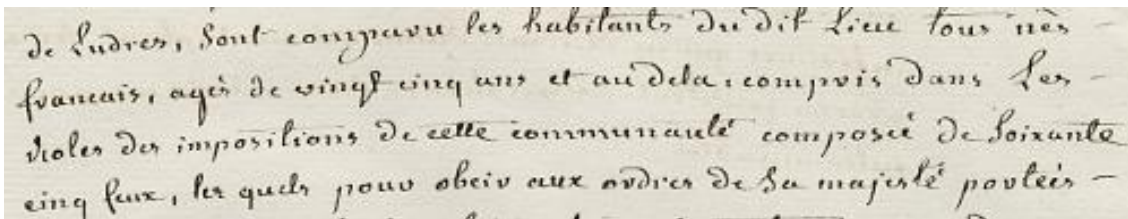 de Ludres, Sont comparu les habitants du dit Lieu tous nès -
francais, agès de vingt cinq ans et au dela, compris dans Les -
rioles des impositions de cette communauté composée de Soixante
cinq feux, les quels pour obeir aux ordres de Sa majesté portéés -